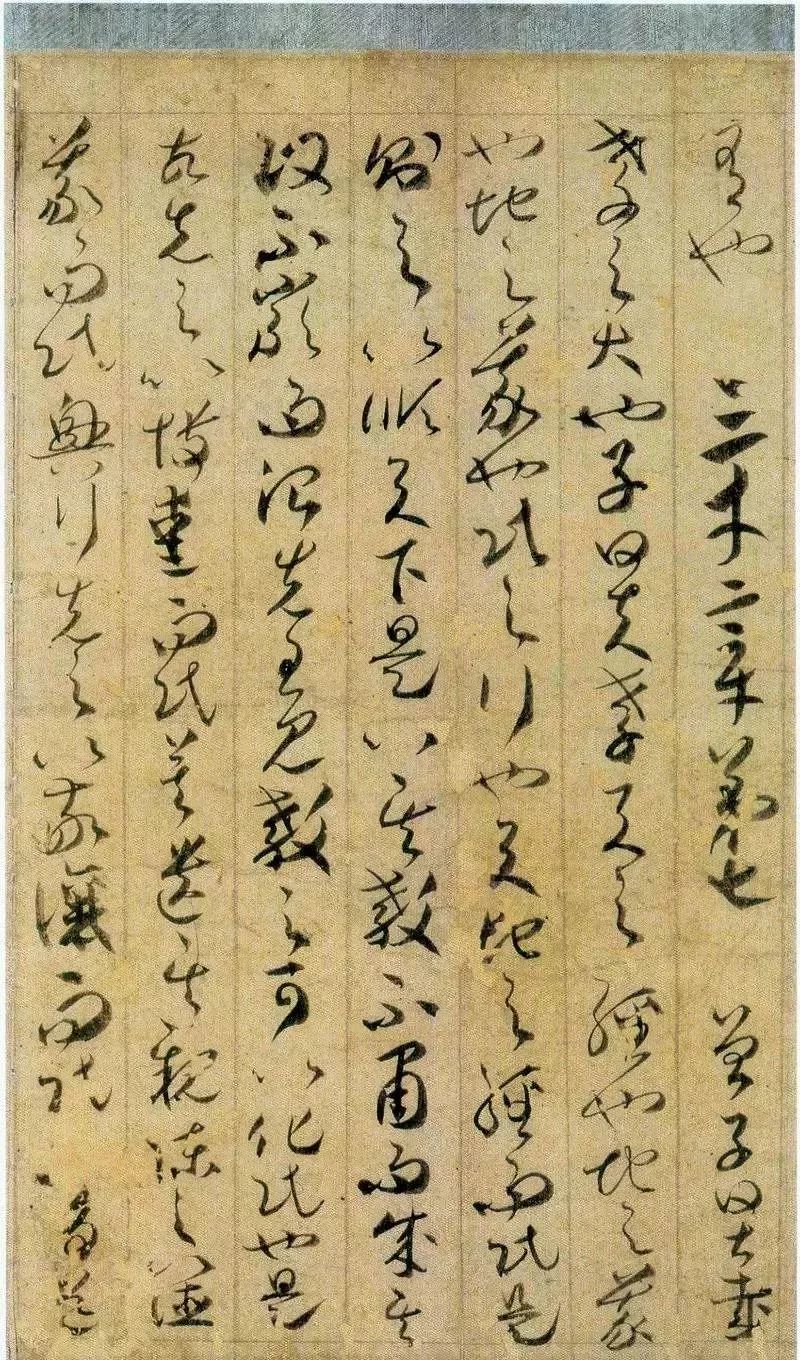 有也 三才章第七 曾子曰甚哉
孝之大也子曰夫孝天之經也地之義
也地之義也民之行也天地之經而民是
則之以順天下是以其教不肅而成其
政不嚴而治先王見教之可以化民也是
故先之以博愛而民莫遺其親陳之以德
義而民興行先之以敬讓而民